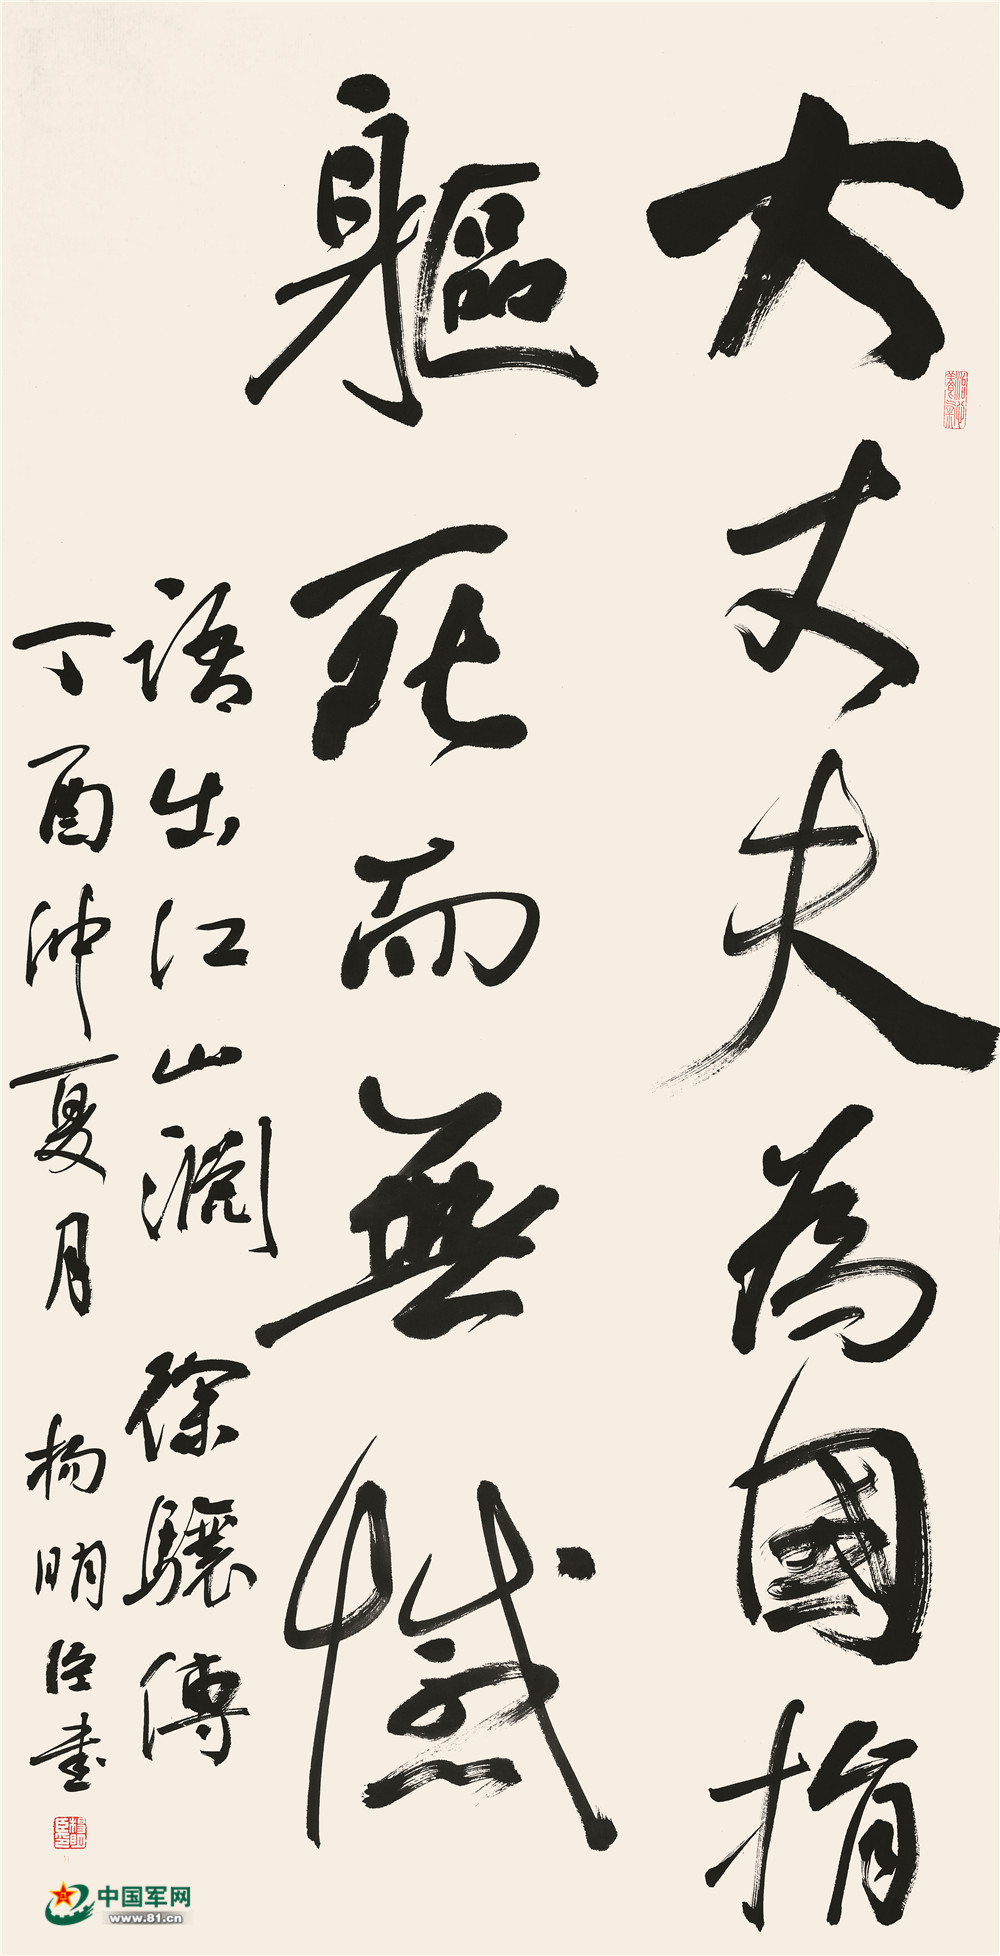 大丈夫為國捐
軀死而無憾
語出江山淵徐驤傳
丁酉仲夏月 楊明臣書
中国军网
www.81.cn